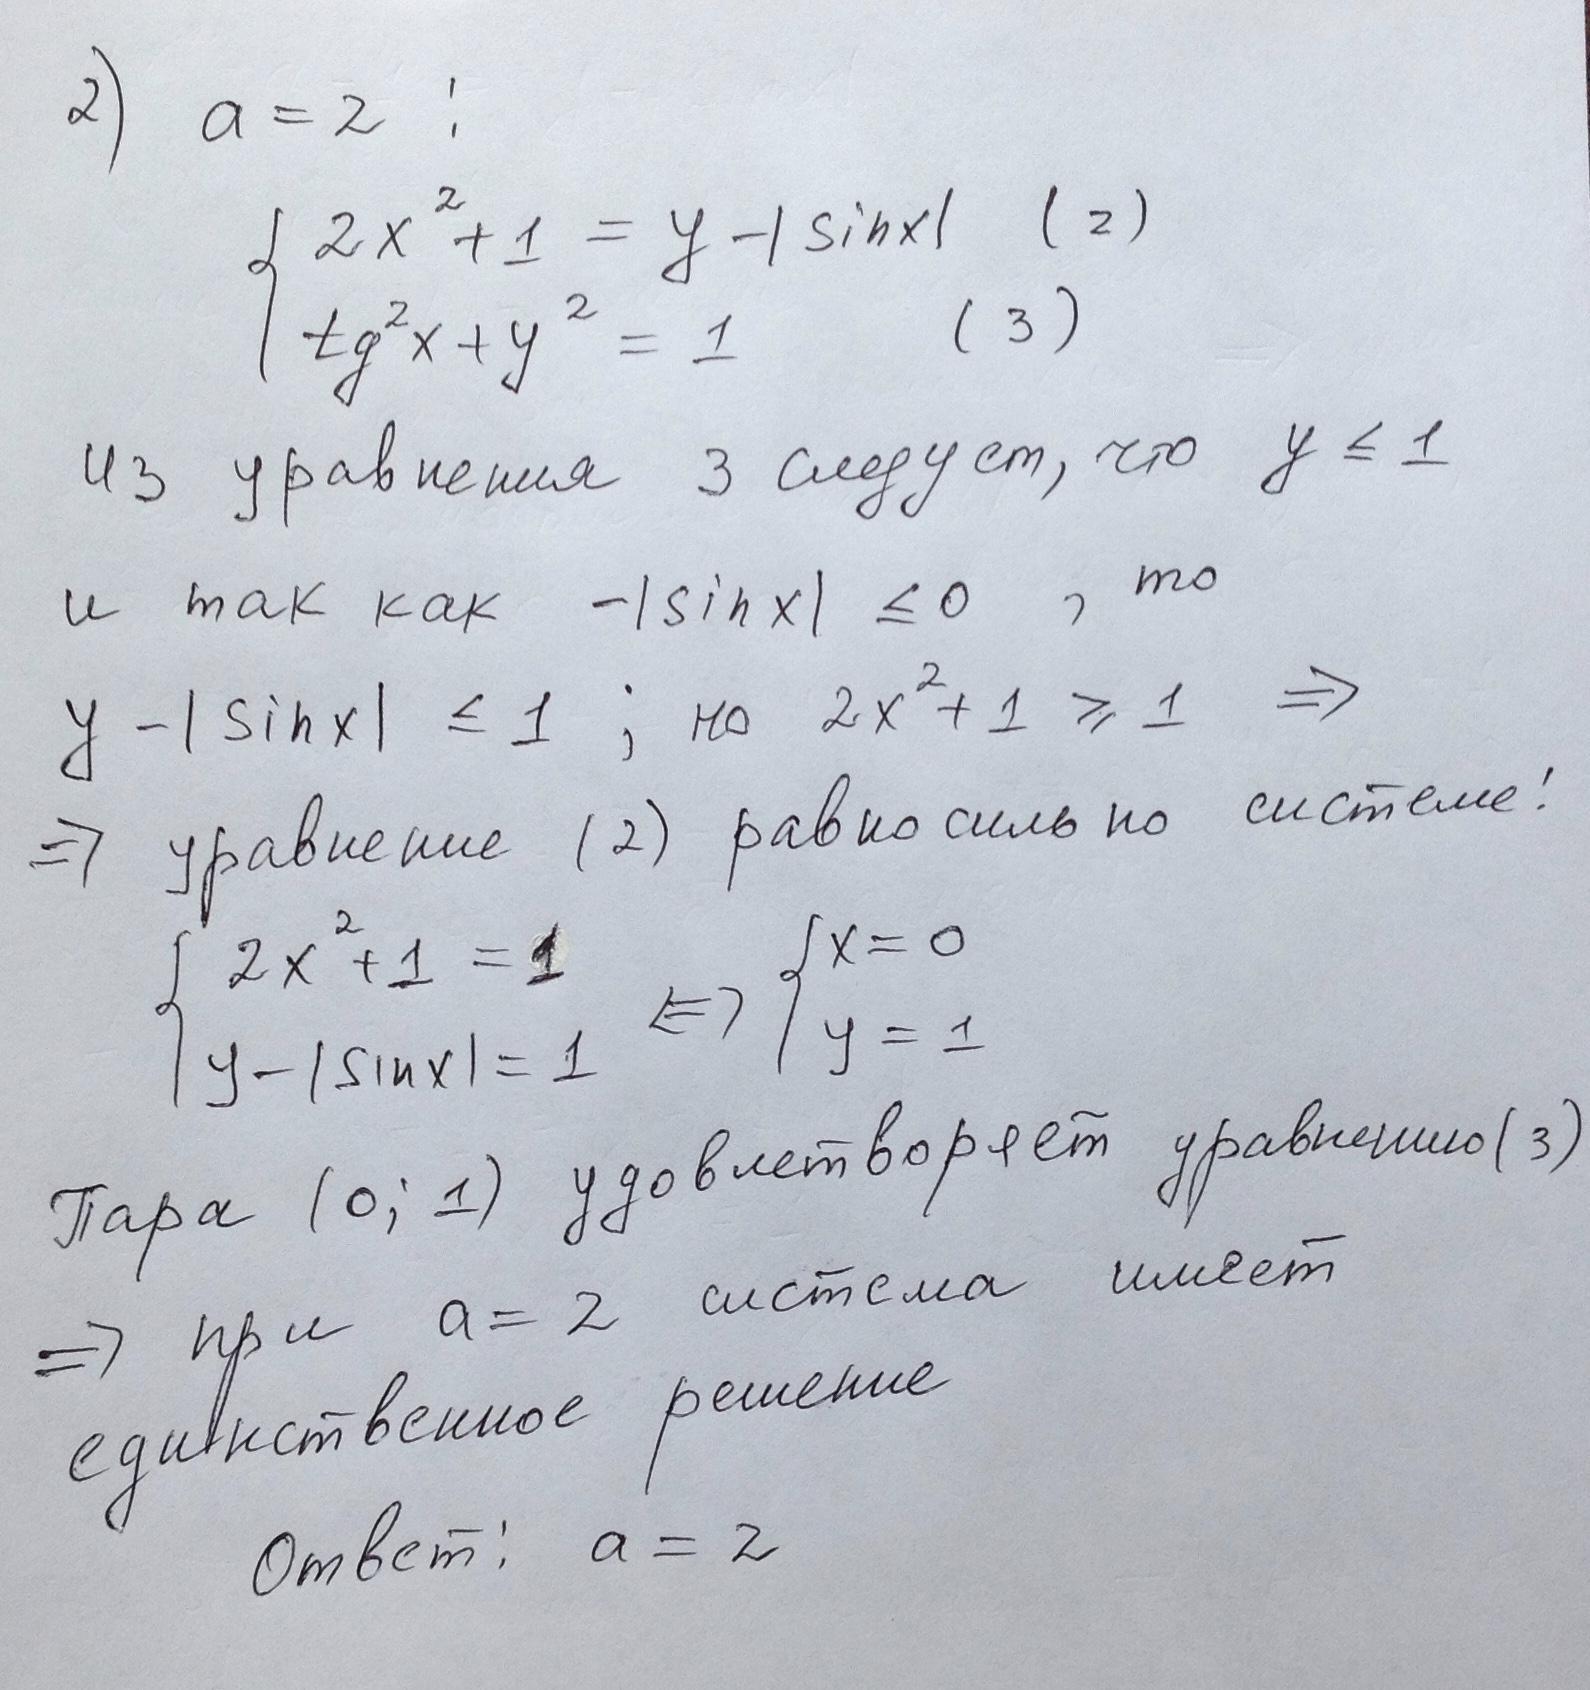 2) a = 2 :
{ 2x² + 1 = y - |sinx| (2)
{ tg²x + y² = 1 (3)
из уравнения 3 следует, что y ≤ 1
и так как -|sinx| ≤ 0 , то
y - |sinx| ≤ 1 ; но 2x² + 1 ⩾ 1 ⇒
⇒ уравнение (2) равносильно системе:
{ 2x² + 1 = 1 ⇔ { x = 0
{ y - |sinx| = 1 { y = 1
Пара (0; 1) удовлетворяет уравнению (3)
⇒ при a = 2 система имеет
единственное решение
Ответ: a = 2